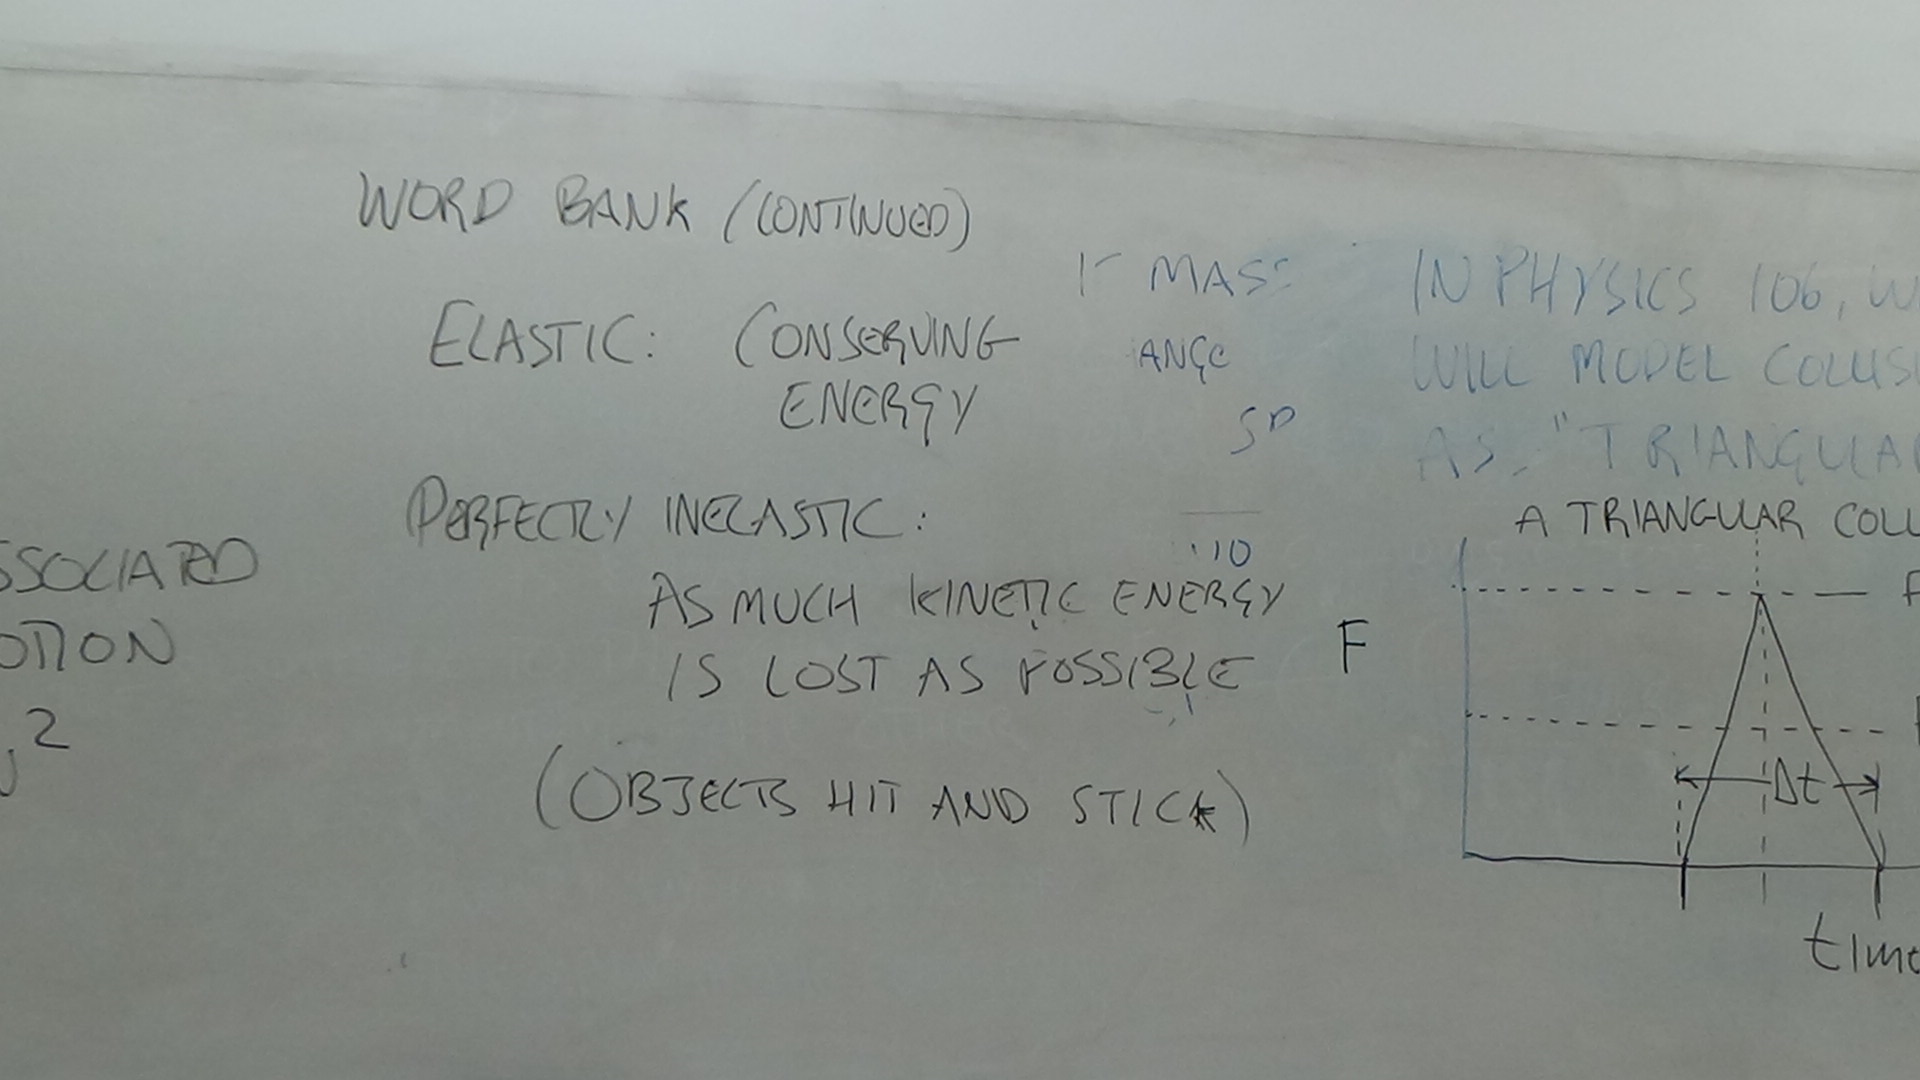 WORD BANK (CONTINUED)
ELASTIC: CONSERVING
ENERGY
PERFECTLY INELASTIC:
AS MUCH KINETIC ENERGY
IS LOST AS POSSIBLE
(OBJECTS HIT AND STICK)
SSOCIATED
OTION
2
MAS
ANGE
IN PHYSICS 106, W
WILL MODEL COLLIS
AS "TRIANGULAR
A TRIANGULAR COLL
F
Δt
time